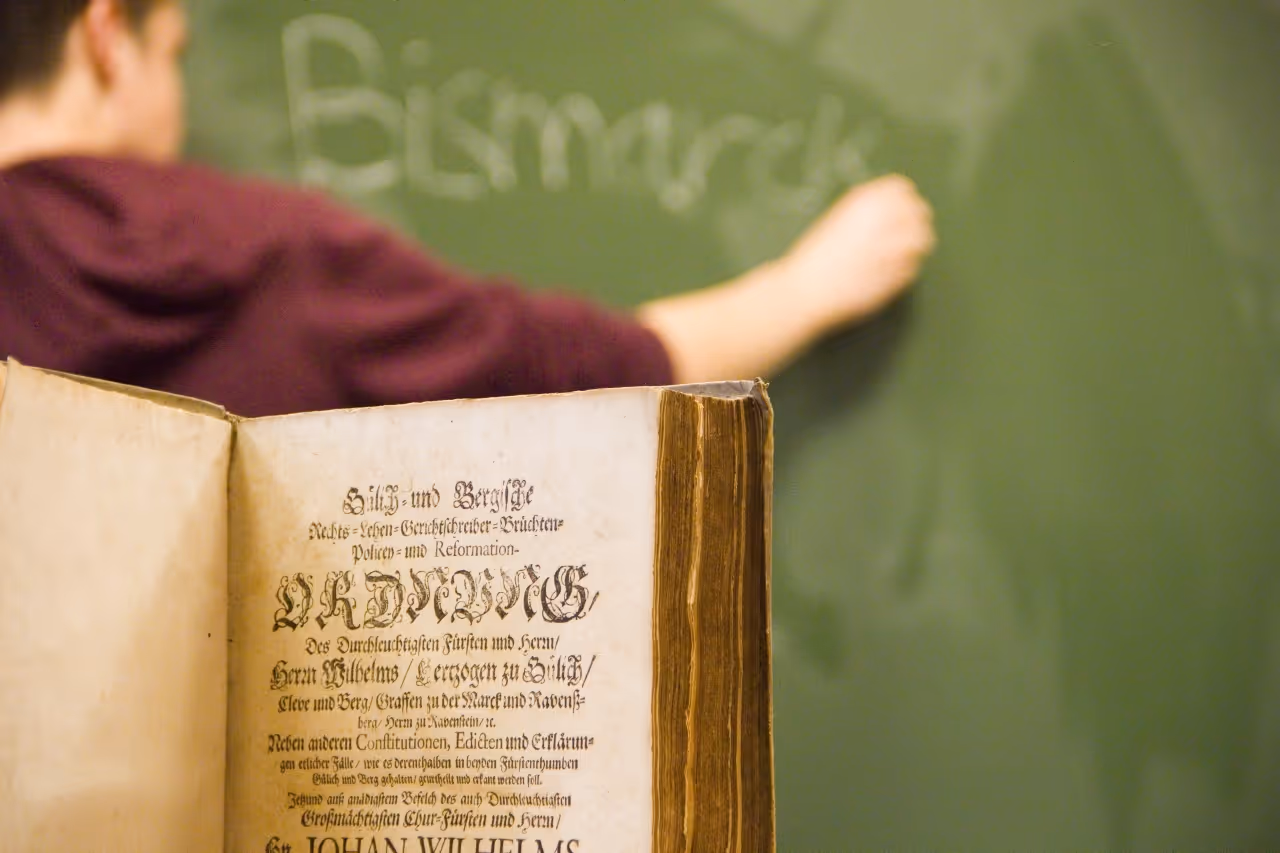 Bismarck
Gülich- und Bergische
Rechts-Lehen-Gerichtschreiber-Brüchten-
Policey- und Reformation-
ORDNUNG/
Des Durchleuchtigsten Fürsten und Herrn/
Herrn Wilhelms/ Hertzogen zu Gülich/
Cleve und Berg/ Graffen zu der Marck und Ravenß-
berg/ Herrn zu Ravenstein/ ꝛc.
Neben anderen Constitutionen, Edicten und Erklärun-
gen etlicher Fälle/ wie es derenthalben in beyden Fürstenthumben
Gülich und Berg gehalten/ geurtheilt und erkant werden soll.
Jetzund auß gnädigstem Befelch des auch Durchleuchtigsten
Großmächtigsten Chur-Fürsten und Herrn/
Hn. JOHAN WILHELMS